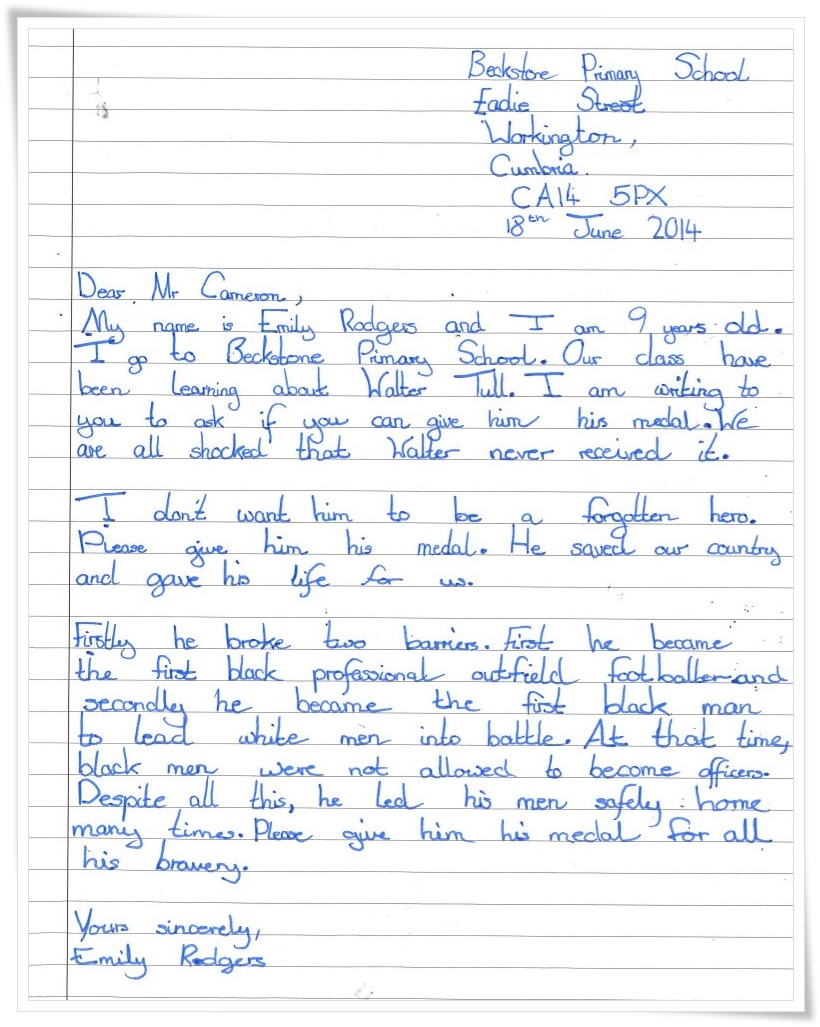 Beckstone Primary School
Eadie Street
Workington,
Cumbria.
CA14 5PX
18th June 2014
Dear Mr Cameron,
My name is Emily Rodgers and I am 9 years old.
I go to Beckstone Primary School. Our class have
been learning about Walter Tull. I am writing to
you to ask if you can give him his medal. We
are all shocked that Walter never received it.
I don't want him to be a forgotten hero.
Please give him his medal. He saved our country
and gave his life for us.
Firstly he broke two barriers. First he became
the first black professional outfield footballer and
secondly he became the first black man
to lead white men into battle. At that time,
black men were not allowed to become officers.
Despite all this, he led his men safely home
many times. Please give him his medal for all
his bravery.
Yours sincerely,
Emily Rodgers